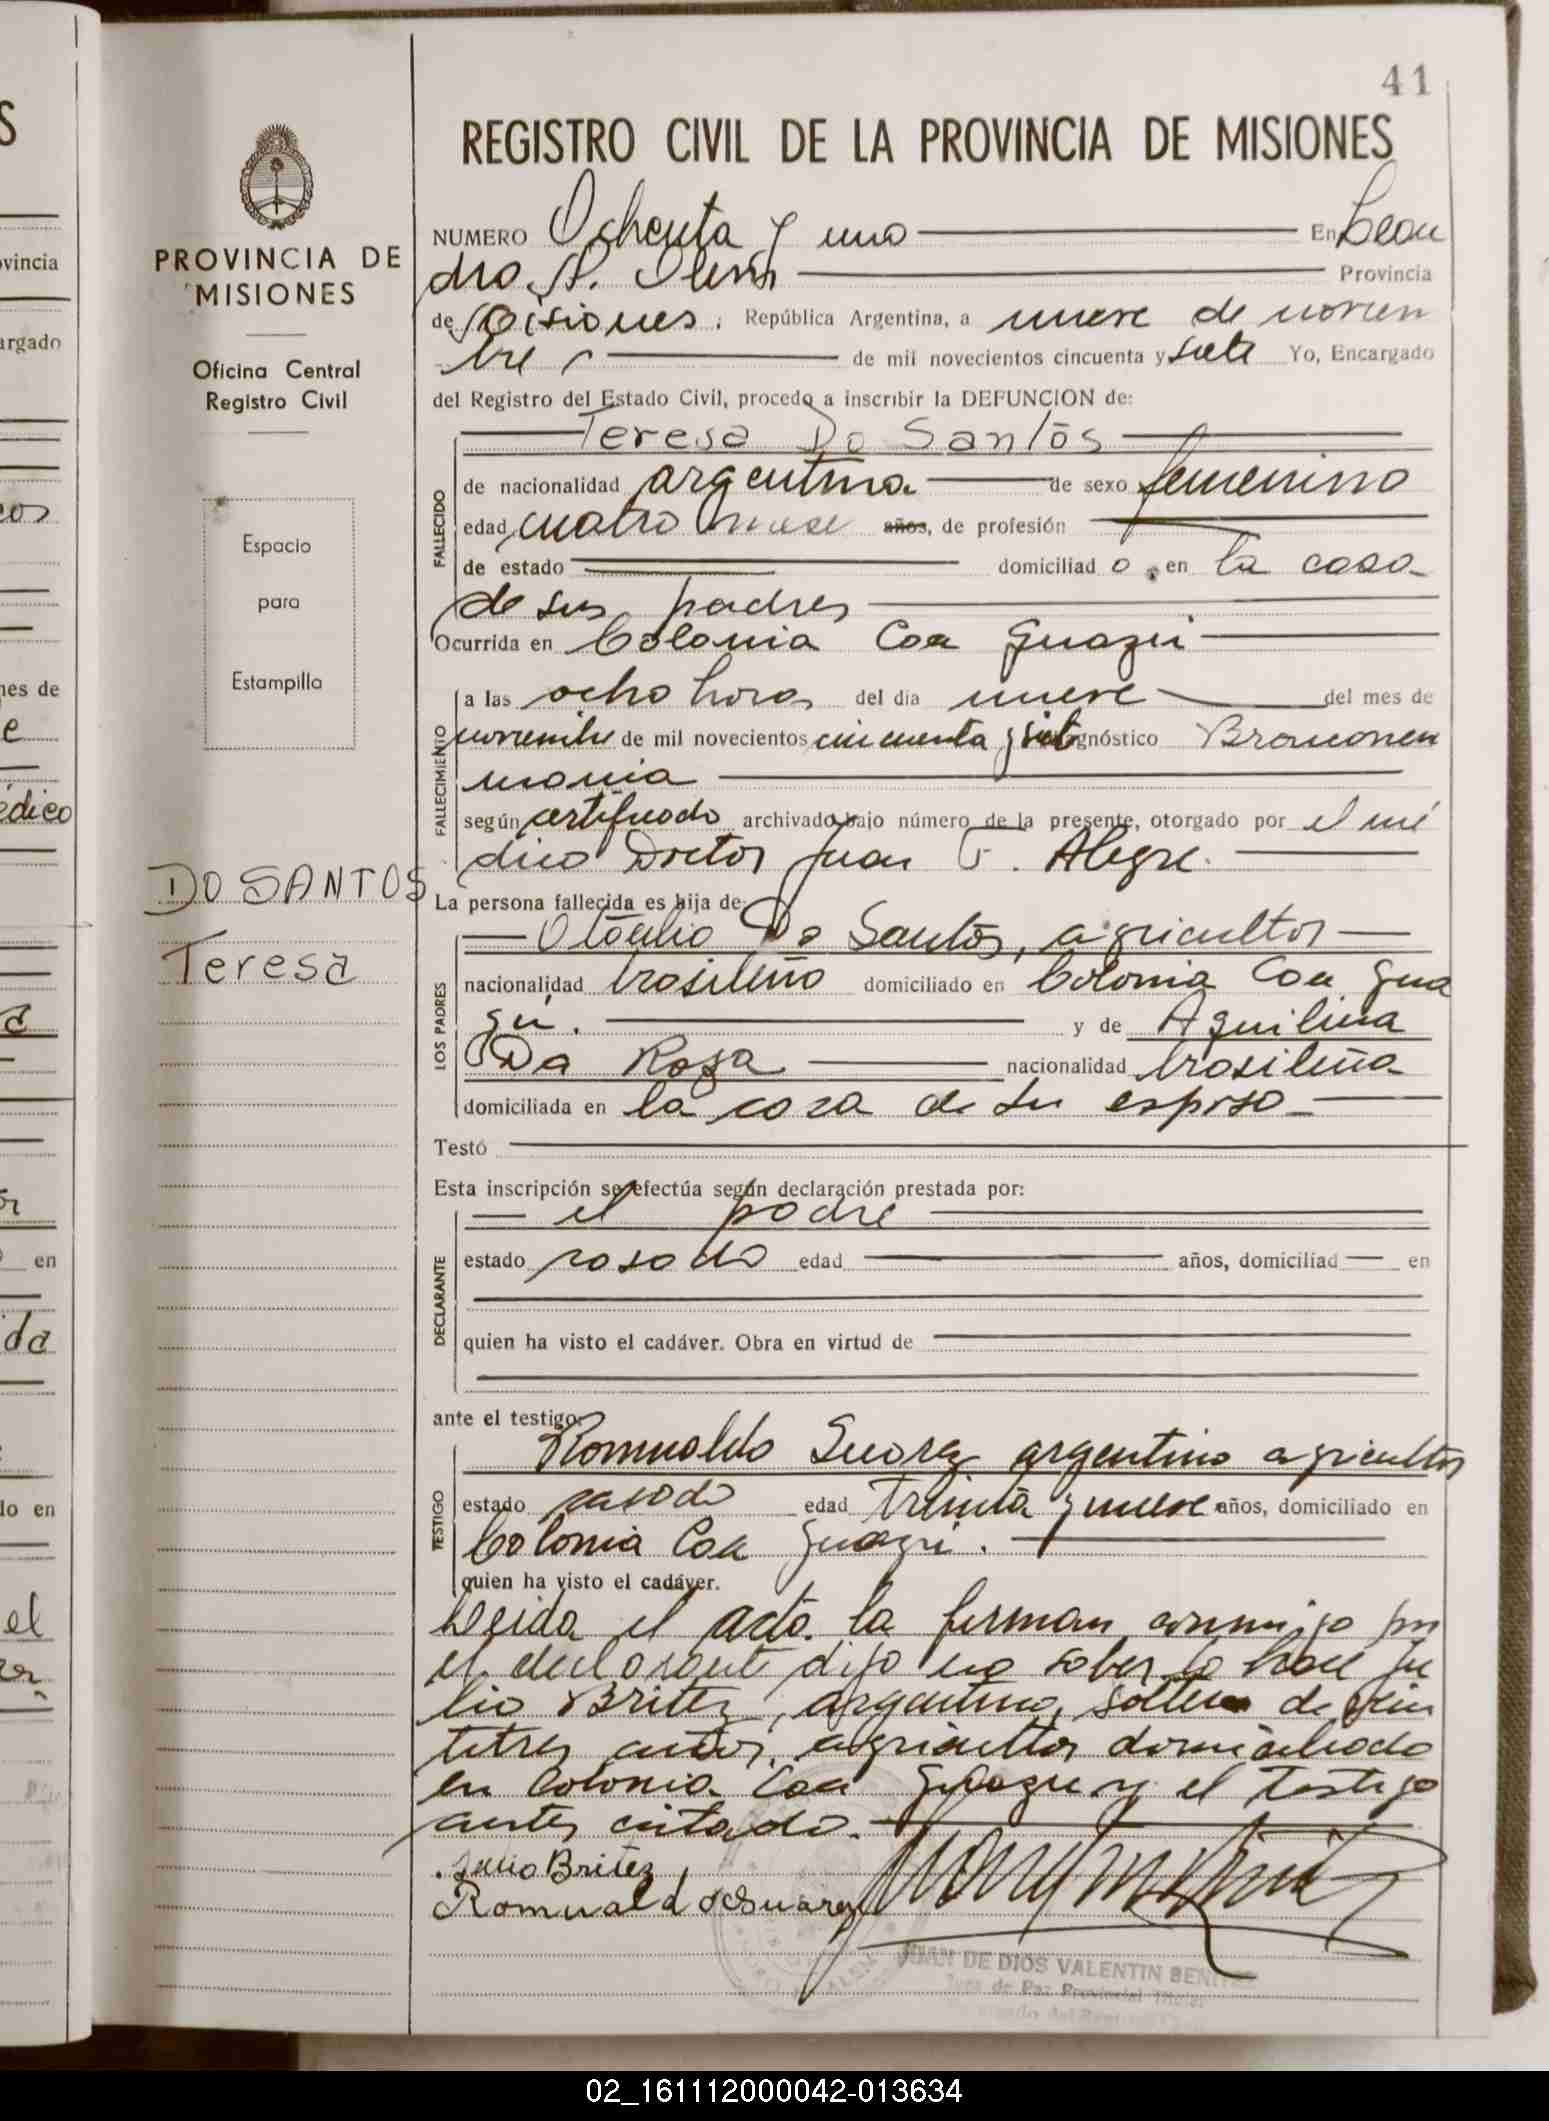 41
REGISTRO CIVIL DE LA PROVINCIA DE MISIONES
PROVINCIA DE
MISIONES
Oficina Central
Registro Civil
Espacio
para
Estampilla
DO SANTOS
Teresa
NUMERO Ochenta y uno En Lean
dro N. Alem Provincia
de Misiones. República Argentina, a nueve de noviem
bre de mil novecientos cincuenta y siete Yo, Encargado
del Registro del Estado Civil, procedo a inscribir la DEFUNCION de:
Teresa Do Santos
FALLECIDO
de nacionalidad argentina de sexo femenino
edad cuatro mese años, de profesión
de estado domiciliad o en la casa
de sus padres
Ocurrida en Colonia Caa Guazú
FALLECIMIENTO
a las ocho horas del dia nueve del mes de
noviembre de mil novecientos cincuenta y siete diagnóstico Bronconeu
monia
según certificado archivado bajo número de la presente, otorgado por el mé
dico Doctor Juan T. Alegre.
La persona fallecida es hija de:
LOS PADRES
Otacilio Do Santos, agricultor
nacionalidad brasileño domiciliado en Colonia Caa Gua
zú. y de Aquilina
Da Rosa nacionalidad brasileña
domiciliada en la casa de su esposo
Testó
Esta inscripción se efectúa según declaración prestada por:
el padre
DECLARANTE
estado casado edad años, domiciliad en
quien ha visto el cadáver. Obra en virtud de
ante el testigo:
Romualdo Suarez argentino agricultor
TESTIGO
estado casado edad treinta y nueve años, domiciliado en
Colonia Caa Guazú.
quien ha visto el cadáver.
Leida el acta la firman conmigo por
el declarante dijo no saber lo hace Ju
lio Britez, argentino, soltero de vein
titres años, agricultor domiciliado
en Colonia Caa Guazú y el testigo
antes citado.
Julio Britez
Romualdo Suarez
JUAN DE DIOS VALENTIN BENITEZ
Juez de Paz Provincial Titular
02_161112000042-013634